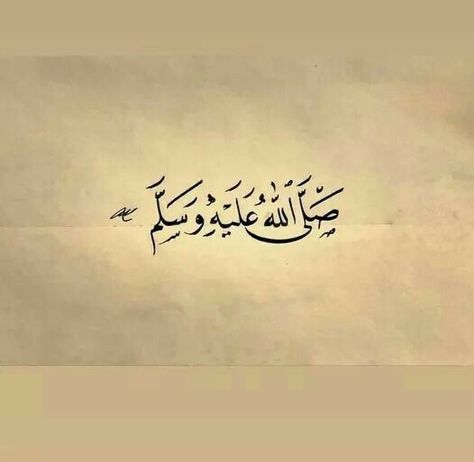 صَلَّى ٱللَّهُ عَلَيْهِ وَسَلَّمَ